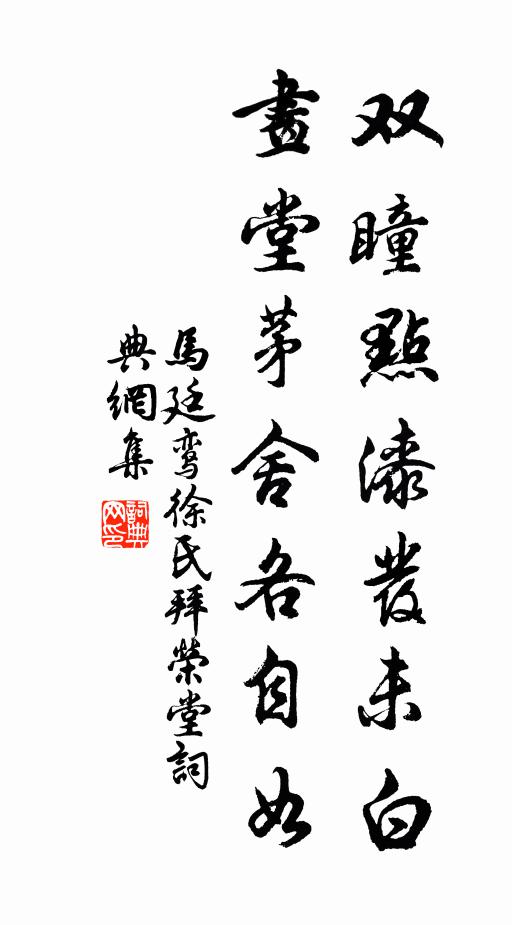 双瞳點漆發未白
畫堂茅舍各自如
馬廷鸾徐氏拜榮堂詞
典網集
詞典
网印